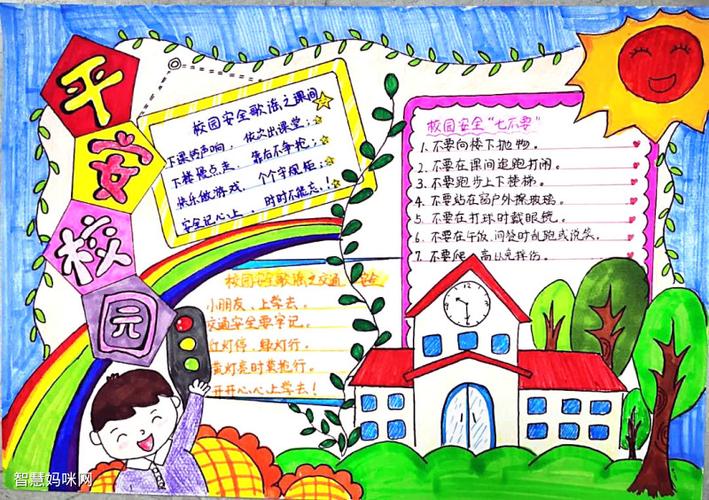 平安校园
校园安全歌谣之课间
下课铃声响,依次出课堂;
下楼慢点走,靠右不争抢;
快乐做游戏,个个守规矩;
安全记心上,时时不能忘!
校园安全"七不要"
1.不要向楼下抛物。
2.不要在课间追跑打闹。
3.不要跑步上下楼梯。
4.不要站在窗户外擦玻璃。
5.不要在打球时戴眼镜。
6.不要在午饭、间
7.不要爬
校园安全歌谣之交通
小朋友,上学去。
交通安全要牢记。
红灯停,绿灯行。
黄灯亮时
开开心心上学去!
智慧妈咪网